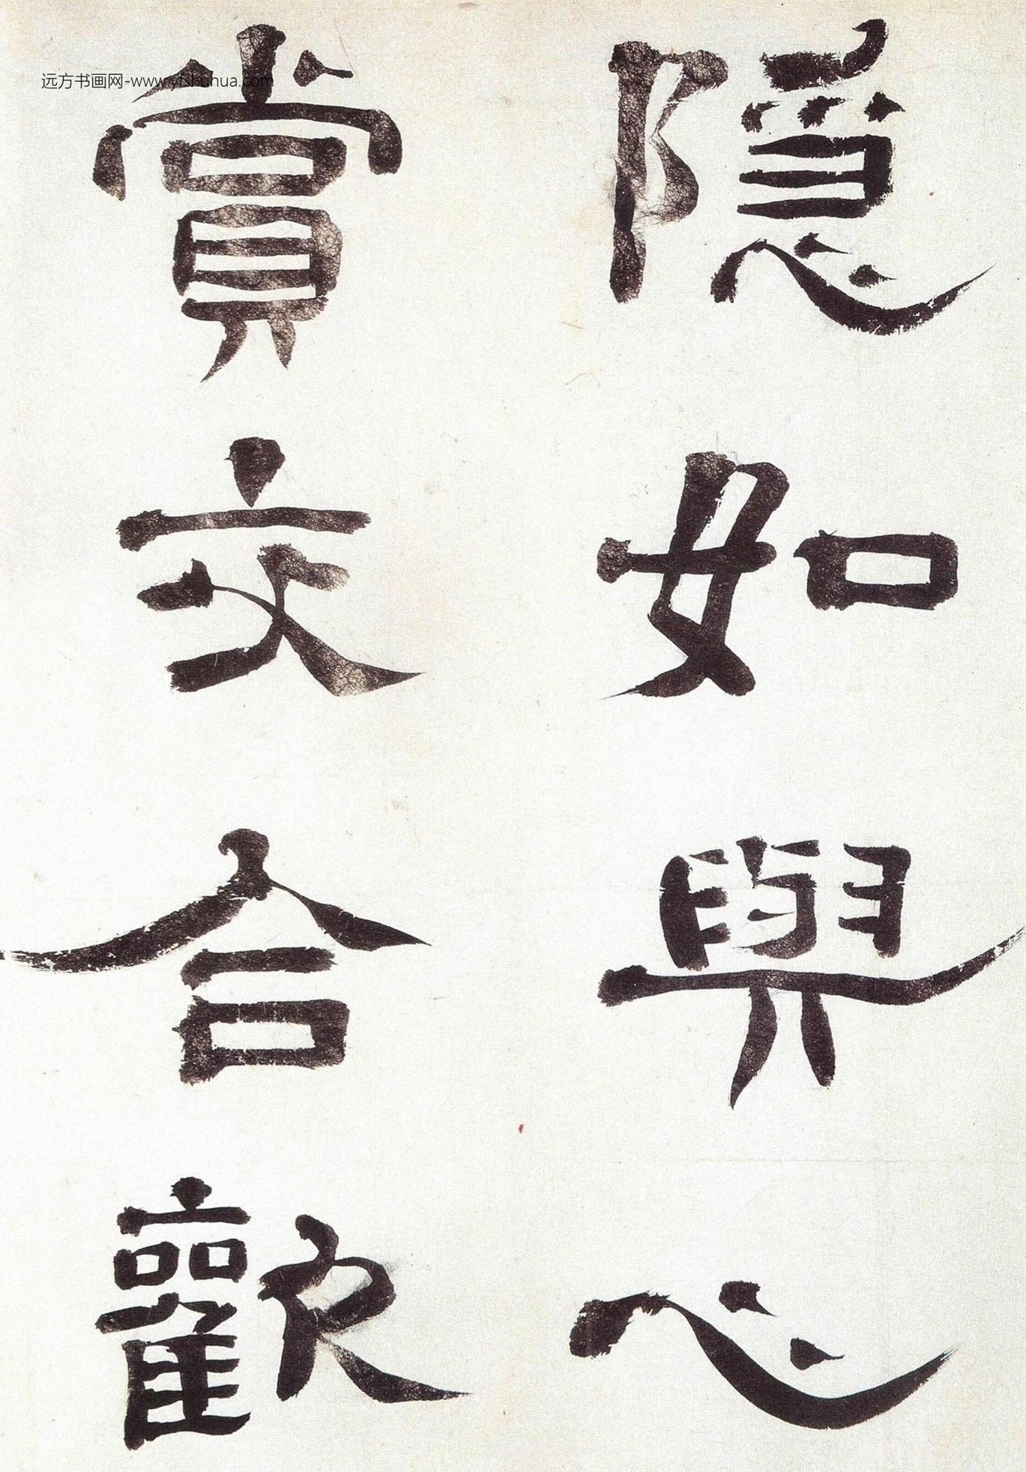 隱如與心
賞交合歡
远方书画网-www.yfshuhua.com